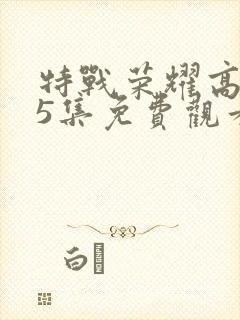 特戰榮耀高
5集免費觀
白